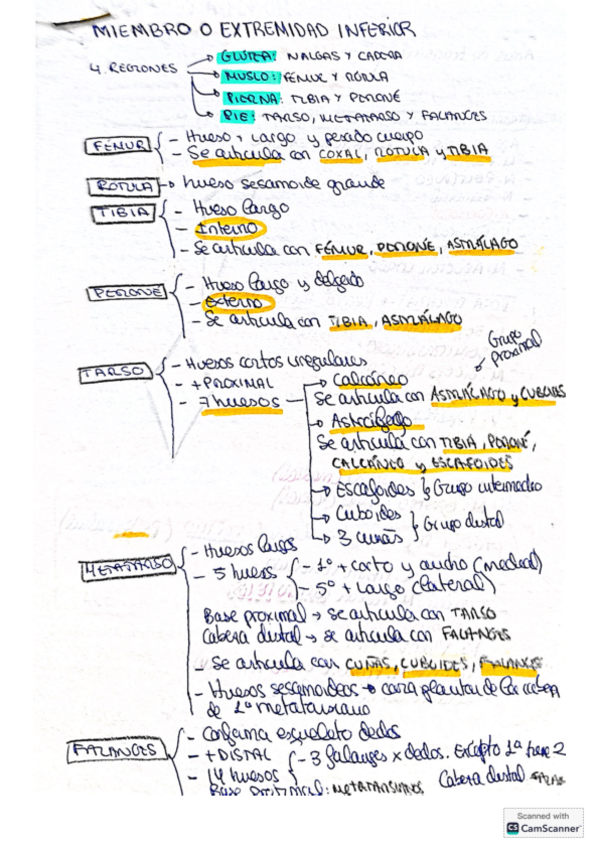 MIEMBRO O EXTREMIDAD INFERIOR
4 REGIONES
GLÚTEA: NALGAS Y CADERA
MUSLO: FÉMUR Y RÓTULA
PIERNA: TIBIA Y PERONÉ
PIE: TARSO, METATARSO Y FALANGES
FÉMUR
- Hueso + largo y pesado cuerpo
- Se articula con COXAL, ROTULA y TIBIA
ROTULA → hueso sesamoide grande
TIBIA
- Hueso largo
- Interno
- Se articula con FÉMUR, PERONÉ, ASTRÁGALO
PERONE
- Hueso largo y delgado
- Externo
- Se articula con TIBIA, ASTRÁGALO
TARSO
- Huesos cortos irregulares
- + PROXIMAL
- 7 huesos
Grupo proximal
→ Calcáneo
Se articula con ASTRÁGALO y CUBOIDES
→ Astrágalo
Se articula con TIBIA, PERONÉ,
CALCÁNEO y ESCAFOIDES
→ Escafoides } Grupo intermedio
→ Cuboides
→ 3 cuñas } Grupo distal
METATARSO
- Huesos largos
- 5 huesos { - 1º + corto y ancho (medial)
- 5º + largo (lateral)
Base proximal → se articula con TARSO
Cabeza distal → se articula con FALANGES
- Se articula con CUÑAS, CUBOIDES, FALANGES
- Huesos sesamoideos → cara plantar de las cabeza
de 1º metatarsiano
FALANGES
- Conforma esqueleto dedos
- + DISTAL
- 14 huesos
- 3 falanges x dedos. Excepto 1º tiene 2
Base proximal: METATARSIANOS Cabeza distal
Scanned with
CS CamScanner